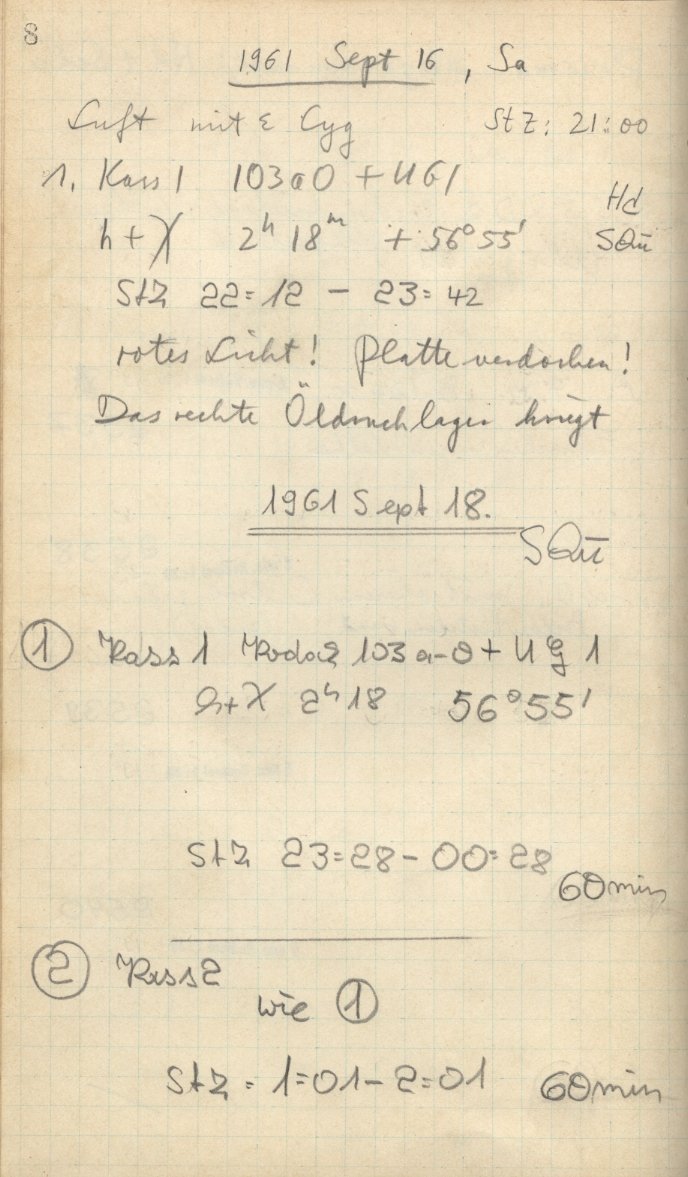 8
1961 Sept 16, Sa
Luft mit ε Cyg StZ: 21:00
1. Kass 1 103aO + UG1
Hd
h+χ 2h 18m + 56° 55' SQū
StZ 22=12 - 23=42
rotes Licht! Platte verdorben!
Das rechte Öldrucklager
1961 Sept 18.
SQū
① Kass 1 Kodak 103a-O + UG 1
h+χ 2h18 56°55'
StZ 23=28 - 00=28
60min
② Kass2
wie ①
StZ = 1=01 - 2=01 60min